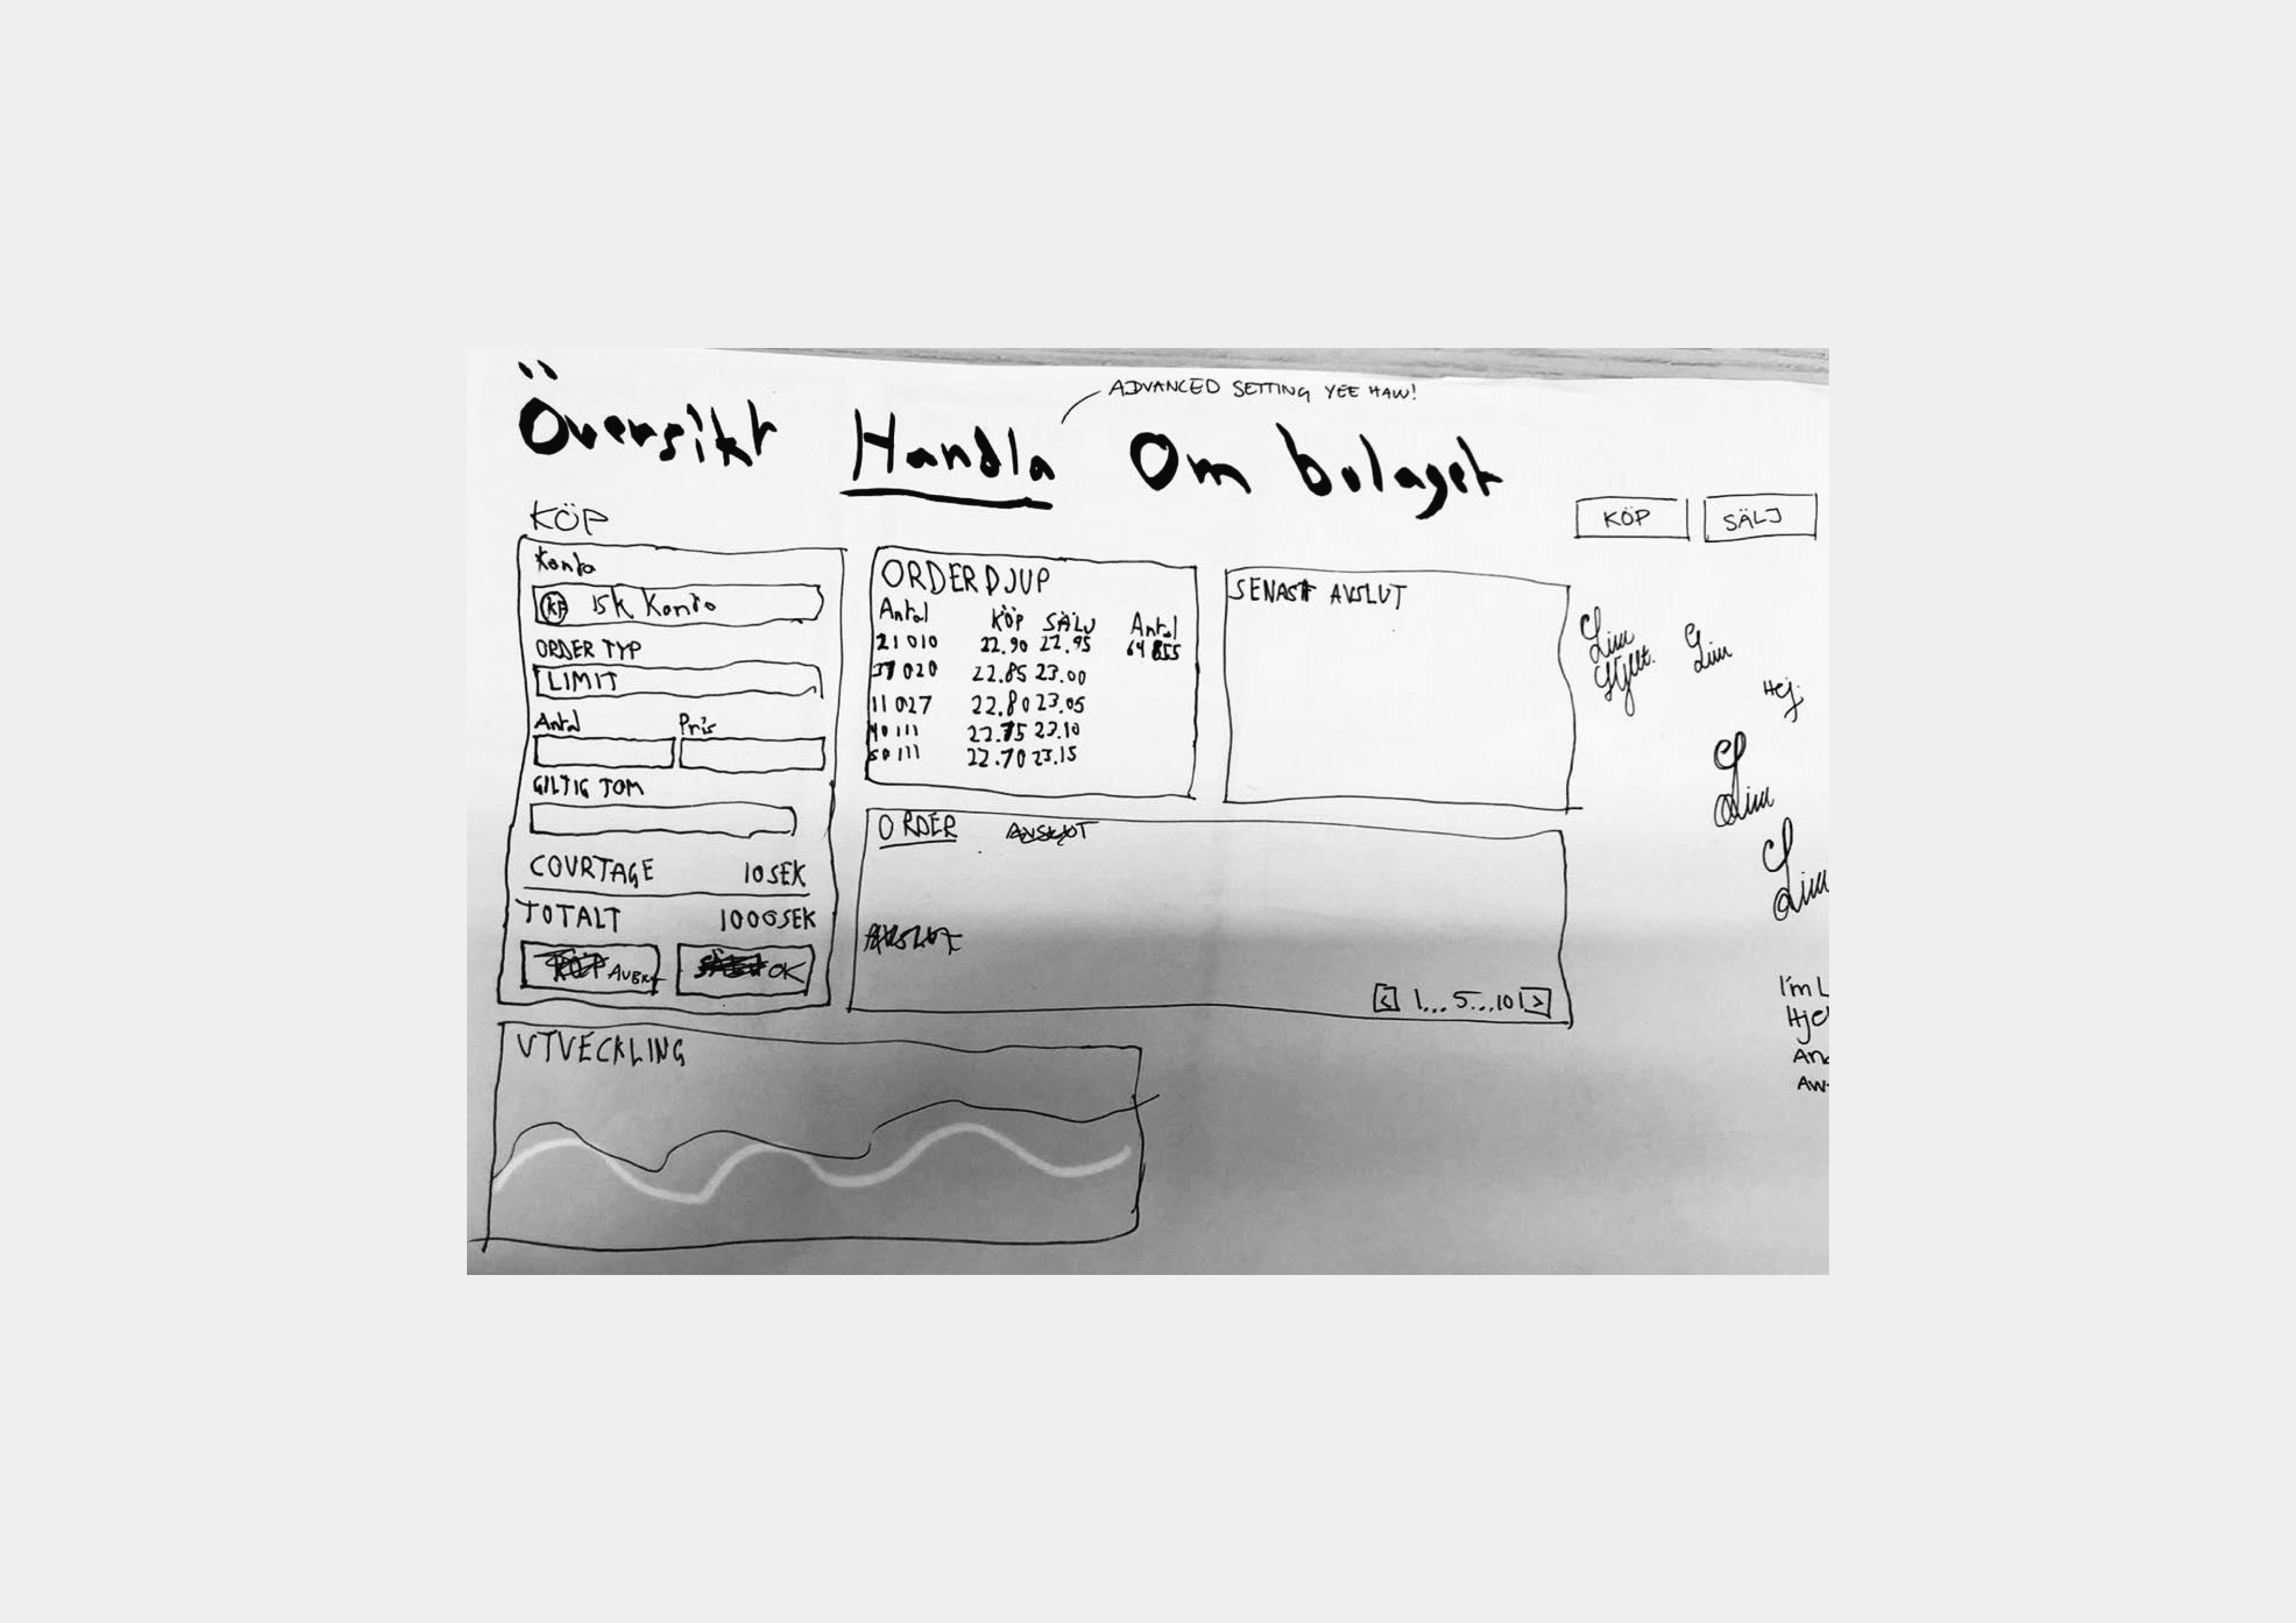 ADVANCED SETTING YEE HAW!
Översikt Handla Om bolaget
KÖP
KÖP SÄLJ
Konto
KF ISK Konto
ORDER TYP
LIMIT
Antal Pris
GILTIG TOM
COURTAGE 10 SEK
TOTALT 1000 SEK
OK
ORDERDJUP
Antal KÖP SÄLJ Antal
21 010 22.90 22.95 64 855
37 020 22.85 23.00
11 027 22.80 23.05
40 111 22.75 23.10
50 111 22.70 23.15
SENAST AVSLUT
ORDER AVSLUT
AVSLUT
< 1...5...10 >
UTVECKLING
Hej
I'm L
Hje
An
AW